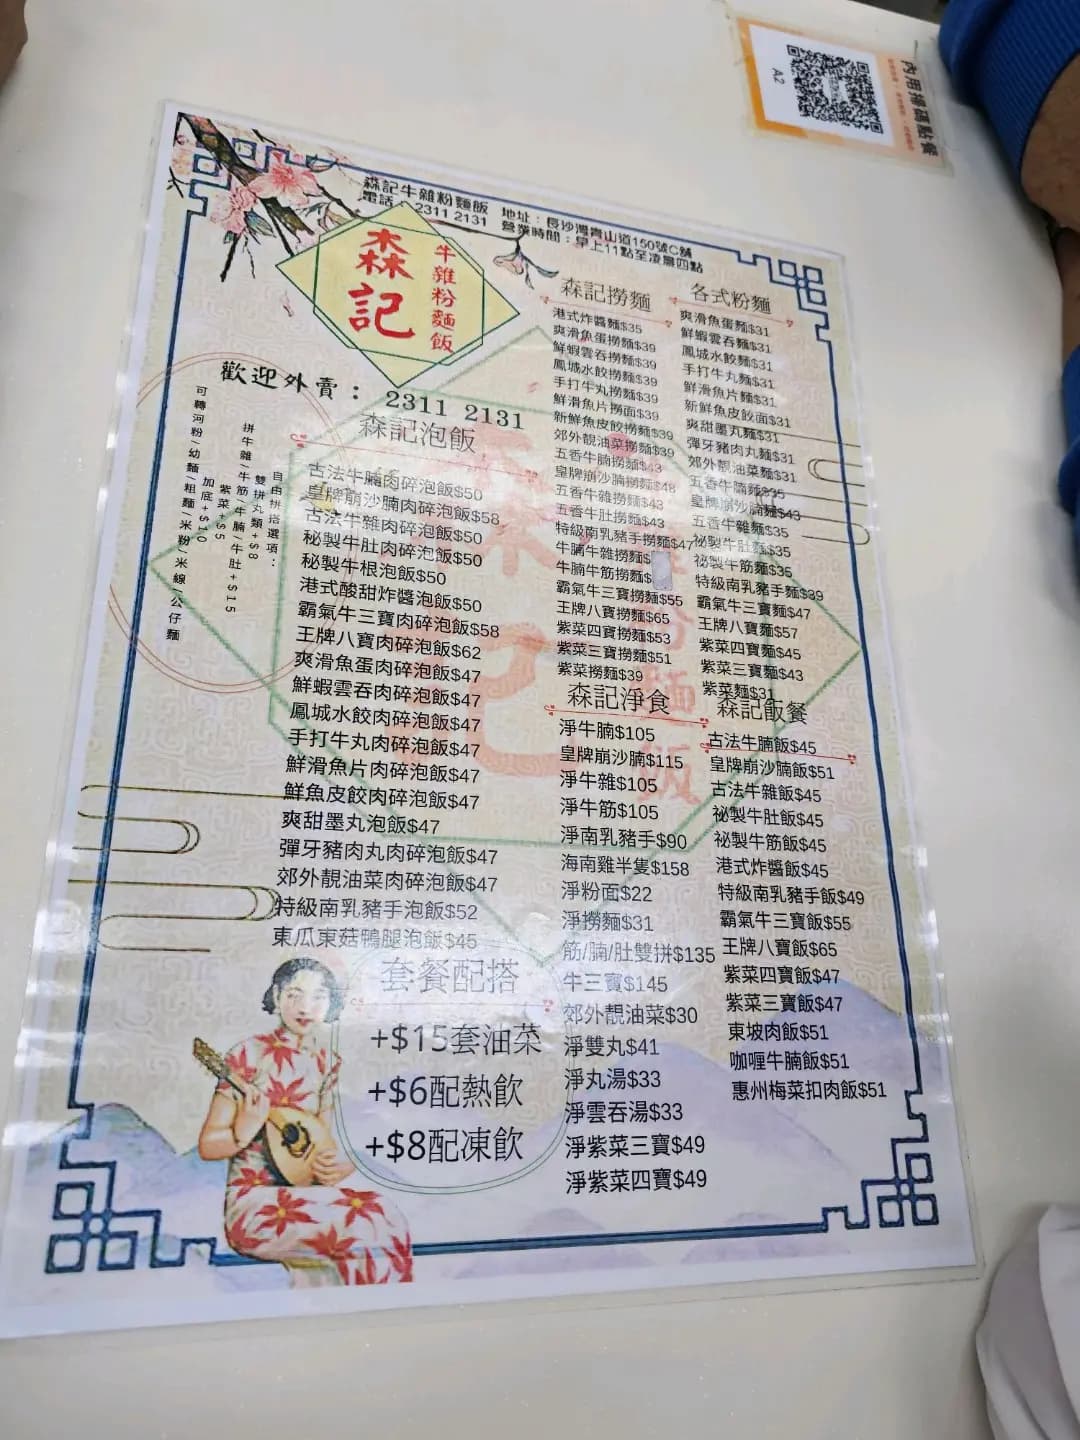 內用掃碼點餐
A2
森記牛雜粉麵飯 地址：長沙灣青山道150號C舖
電話：2311 2131 營業時間：早上11點至凌晨四點
森記
牛雜粉麵飯
歡迎外賣： 2311 2131
自由拼搭選項：
雙拼丸類+$8
拼牛雜/牛筋/牛腩/牛肚+$15
紫菜+$5
加底+$10
可轉河粉/幼麵/粗麵/米粉/米線/公仔麵
森記泡飯
古法牛腩肉碎泡飯$50
皇牌崩沙腩肉碎泡飯$58
古法牛雜肉碎泡飯$50
秘製牛肚肉碎泡飯$50
秘製牛根泡飯$50
港式酸甜炸醬泡飯$50
霸氣牛三寶肉碎泡飯$58
王牌八寶肉碎泡飯$62
爽滑魚蛋肉碎泡飯$47
鮮蝦雲吞肉碎泡飯$47
鳳城水餃肉碎泡飯$47
手打牛丸肉碎泡飯$47
鮮滑魚片肉碎泡飯$47
鮮魚皮餃肉碎泡飯$47
爽甜墨丸泡飯$47
彈牙豬肉丸肉碎泡飯$47
郊外靚油菜肉碎泡飯$47
特級南乳豬手泡飯$52
東瓜東菇鴨腿泡飯$45
套餐配搭
+$15套油菜
+$6配熱飲
+$8配凍飲
森記撈麵
港式炸醬麵$35
爽滑魚蛋撈麵$39
鮮蝦雲吞撈麵$39
鳳城水餃撈麵$39
手打牛丸撈麵$39
鮮滑魚片撈面$39
新鮮魚皮餃撈麵$39
郊外靚油菜撈麵$39
五香牛腩撈麵$43
皇牌崩沙腩撈麵$48
五香牛雜撈麵$43
五香牛肚撈麵$43
特級南乳豬手撈麵$47
牛腩牛雜撈麵$
牛腩牛筋撈麵$
霸氣牛三寶撈麵$55
王牌八寶撈麵$65
紫菜四寶撈麵$53
紫菜三寶撈麵$51
紫菜撈麵$39
森記淨食
淨牛腩$105
皇牌崩沙腩$115
淨牛雜$105
淨牛筋$105
淨南乳豬手$90
海南雞半隻$158
淨粉面$22
淨撈麵$31
筋/腩/肚雙拼$135
牛三寶$145
郊外靚油菜$30
淨雙丸$41
淨丸湯$33
淨雲吞湯$33
淨紫菜三寶$49
淨紫菜四寶$49
各式粉麵
爽滑魚蛋麵$31
鮮蝦雲吞麵$31
鳳城水餃麵$31
手打牛丸麵$31
鮮滑魚片麵$31
新鮮魚皮餃面$31
爽甜墨丸麵$31
彈牙豬肉丸麵$31
郊外靚油菜麵$31
五香牛腩麵$35
皇牌崩沙腩麵$43
五香牛雜麵$35
祕製牛肚麵$35
祕製牛筋麵$35
特級南乳豬手麵$39
霸氣牛三寶麵$47
王牌八寶麵$57
紫菜四寶麵$45
紫菜三寶麵$43
紫菜麵$31
森記飯餐
古法牛腩飯$45
皇牌崩沙腩飯$51
古法牛雜飯$45
祕製牛肚飯$45
祕製牛筋飯$45
港式炸醬飯$45
特級南乳豬手飯$49
霸氣牛三寶飯$55
王牌八寶飯$65
紫菜四寶飯$47
紫菜三寶飯$47
東坡肉飯$51
咖喱牛腩飯$51
惠州梅菜扣肉飯$51